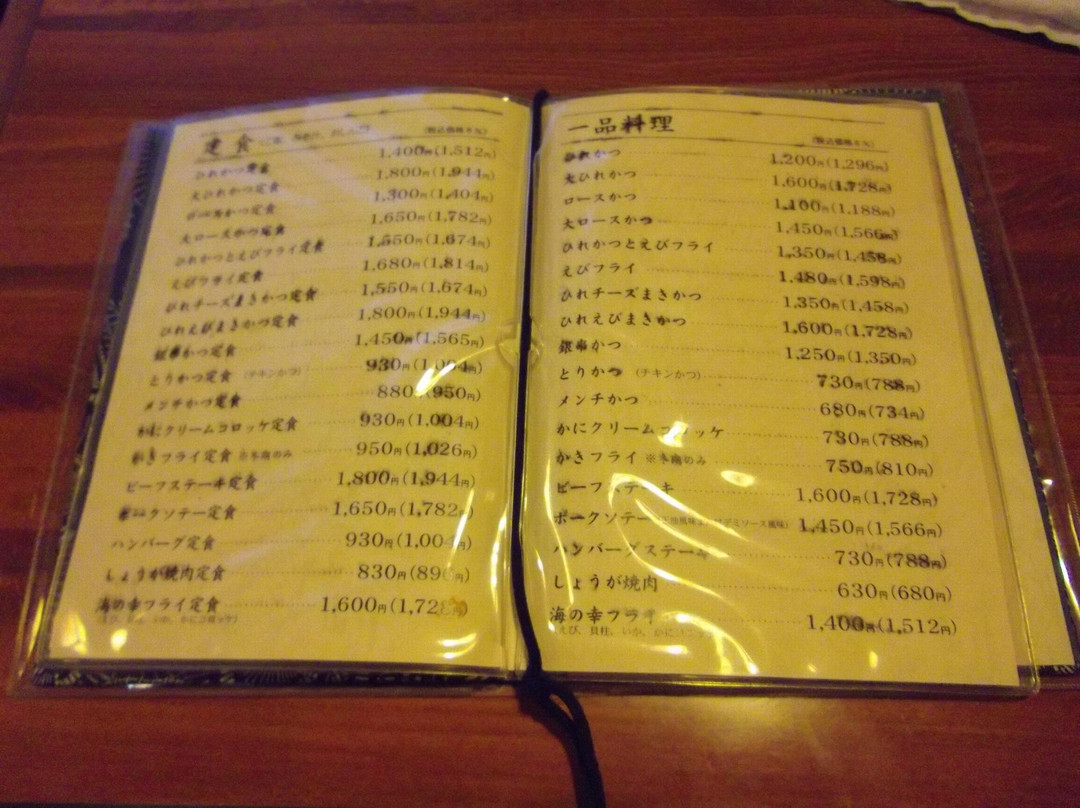 定食
(税込価格8%)
ひれかつ定食 1,400円(1,512円)
大ひれかつ定食 1,800円(1,944円)
ロースかつ定食 1,300円(1,404円)
大ロースかつ定食 1,650円(1,782円)
ひれかつとえびフライ定食 1,550円(1,674円)
えびフライ定食 1,680円(1,814円)
ひれチーズまきかつ定食 1,550円(1,674円)
ひれえびまきかつ定食 1,800円(1,944円)
銀串かつ定食 1,450円(1,565円)
とりかつ定食 (チキンかつ) 930円(1,004円)
メンチかつ定食 880円(950円)
かにクリームコロッケ定食 930円(1,004円)
かきフライ定食 ※冬期のみ 950円(1,026円)
ビーフステーキ定食 1,800円(1,944円)
ポークソテー定食 1,650円(1,782円)
ハンバーグ定食 930円(1,004円)
しょうが焼肉定食 830円(896円)
海の幸フライ定食 1,600円(1,728円)
(えび、貝柱、いか、かにコロッケ)
一品料理
(税込価格8%)
ひれかつ 1,200円(1,296円)
大ひれかつ 1,600円(1,728円)
ロースかつ 1,100円(1,188円)
大ロースかつ 1,450円(1,566円)
ひれかつとえびフライ 1,350円(1,458円)
えびフライ 1,480円(1,598円)
ひれチーズまきかつ 1,350円(1,458円)
ひれえびまきかつ 1,600円(1,728円)
銀串かつ 1,250円(1,350円)
とりかつ (チキンかつ) 730円(788円)
メンチかつ 680円(734円)
かにクリームコロッケ 730円(788円)
かきフライ ※冬期のみ 750円(810円)
ビーフステーキ 1,600円(1,728円)
ポークソテー 1,450円(1,566円)
ハンバーグステーキ 730円(788円)
しょうが焼肉 630円(680円)
海の幸フライ 1,400円(1,512円)
(えび、貝柱、いか、かにコロッケ)